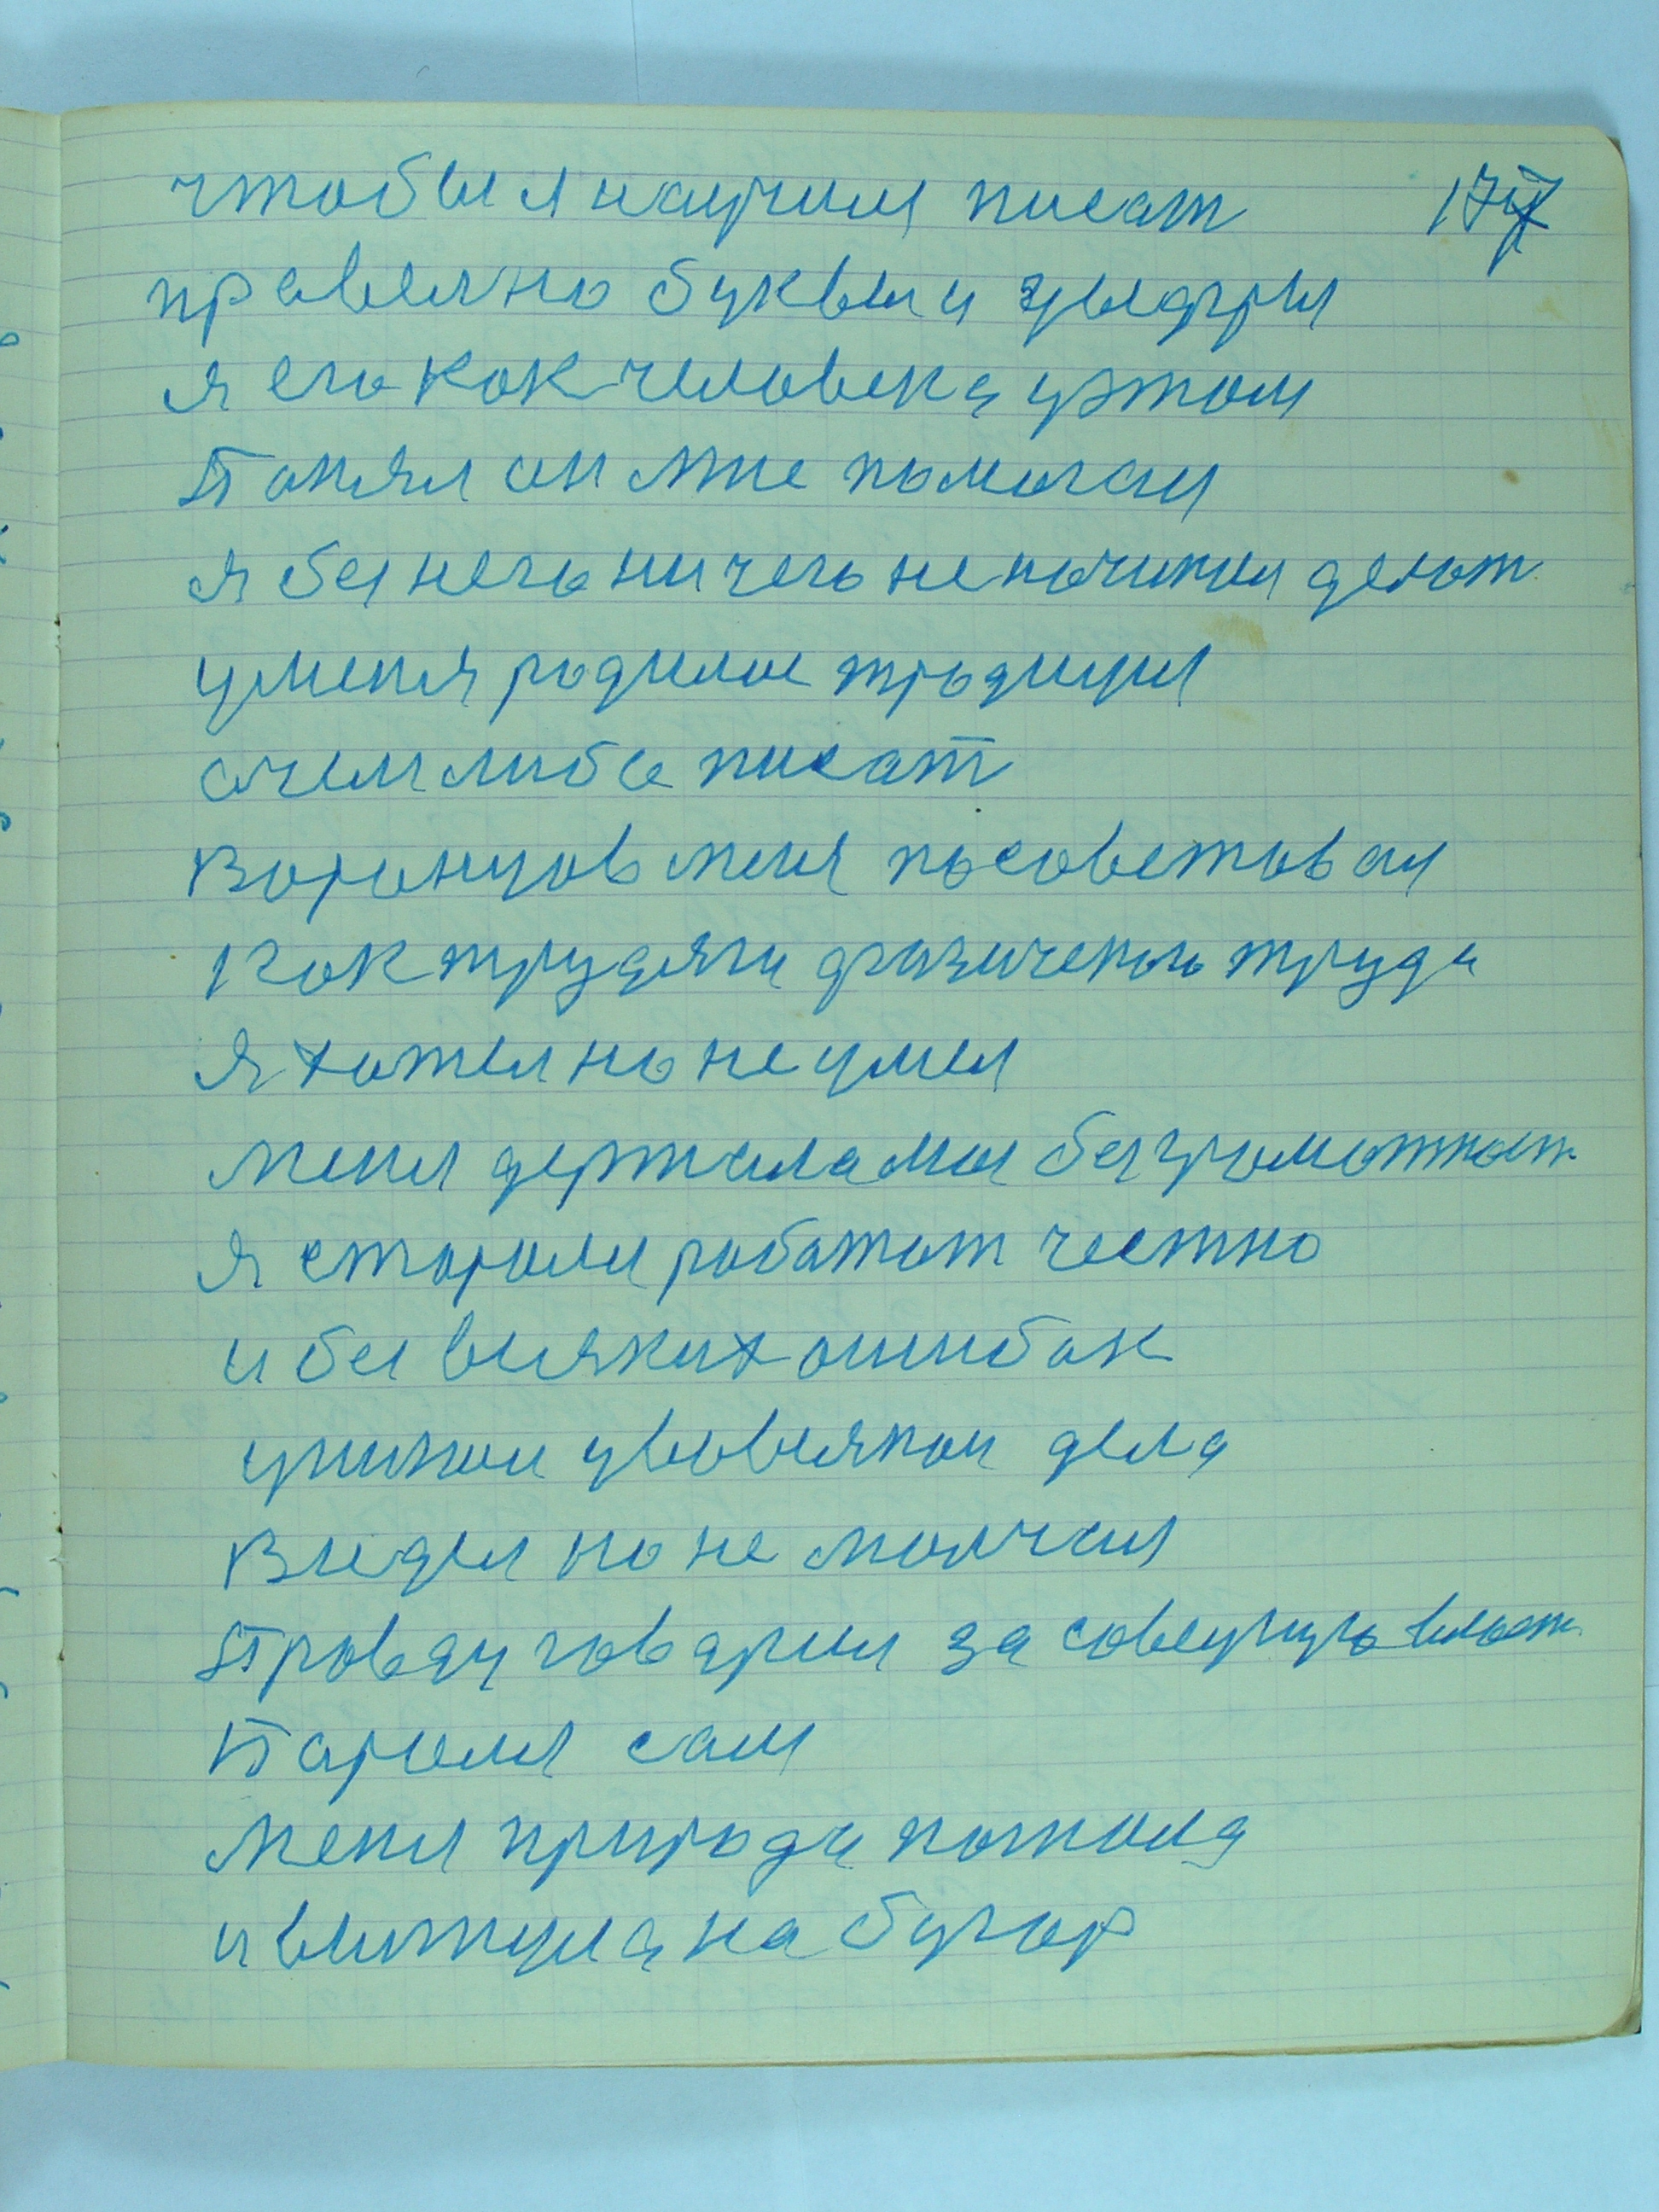 чтобы я научил писат 177
правелно буквы и цыфры
я его как человека у этом
Понял он мне помогал
я без него ничего не начинал делат
у меня родилос традицыя
очем либо писат
Воронцов меня посоветовал
Как трудяги физического труда
я хотел но не умел
меня держала моя безграмотност
я старался работат честно
и без всяких ошибак
учиткой у всовсякой дела
Видел но не молчал
Правду говарил за совецкую власт
Парился сам
меня природа поткала
и вытянула на бугор